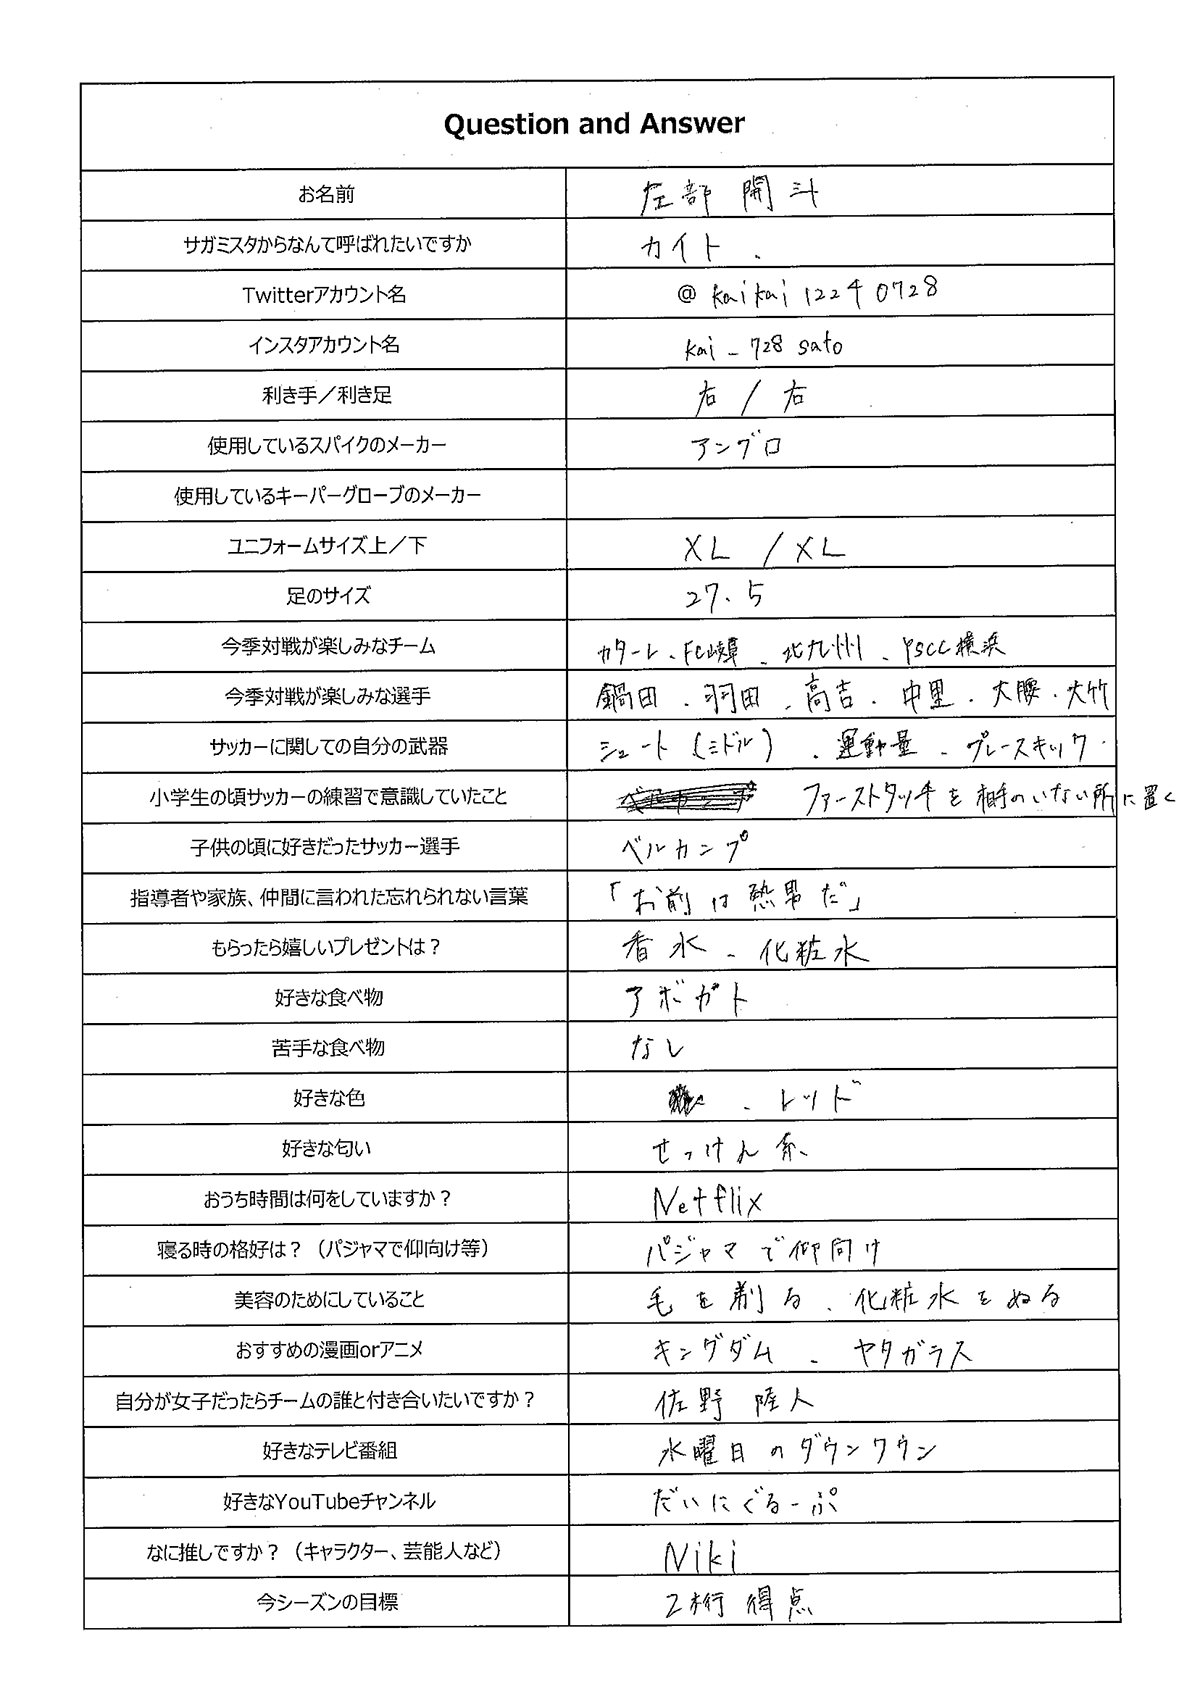 Question and Answer
お名前 左部 開斗
サガミスタからなんて呼ばれたいですか カイト.
Twitterアカウント名 @kaikai12240728
インスタアカウント名 kai_728sato
利き手／利き足 右 / 右
使用しているスパイクのメーカー アンブロ
使用しているキーパーグローブのメーカー
ユニフォームサイズ上／下 XL / XL
足のサイズ 27.5
今季対戦が楽しみなチーム カターレ、FC岐阜、北九州、YSCC横浜
今季対戦が楽しみな選手 鍋田、羽田、高吉、中里、大腰、大竹
サッカーに関しての自分の武器 シュート(ミドル)、運動量、プレースキック.
小学生の頃サッカーの練習で意識していたこと ファーストタッチを相手のいない所に置く
子供の頃に好きだったサッカー選手 ベルカンプ
指導者や家族、仲間に言われた忘れられない言葉 「お前は熱男だ」
もらったら嬉しいプレゼントは？ 香水、化粧水
好きな食べ物 アボガト
苦手な食べ物 なし
好きな色 、レッド
好きな匂い せっけん系、
おうち時間は何をしていますか？ Netflix
寝る時の格好は？（パジャマで仰向け等） パジャマで仰向け
美容のためにしていること 毛を剃る、化粧水をぬる
おすすめの漫画orアニメ キングダム、ヤタガラス
自分が女子だったらチームの誰と付き合いたいですか？ 佐野 陸人
好きなテレビ番組 水曜日のダウンタウン
好きなYouTubeチャンネル だいにぐるーぷ
なに推しですか？（キャラクター、芸能人など） Niki
今シーズンの目標 2桁得点